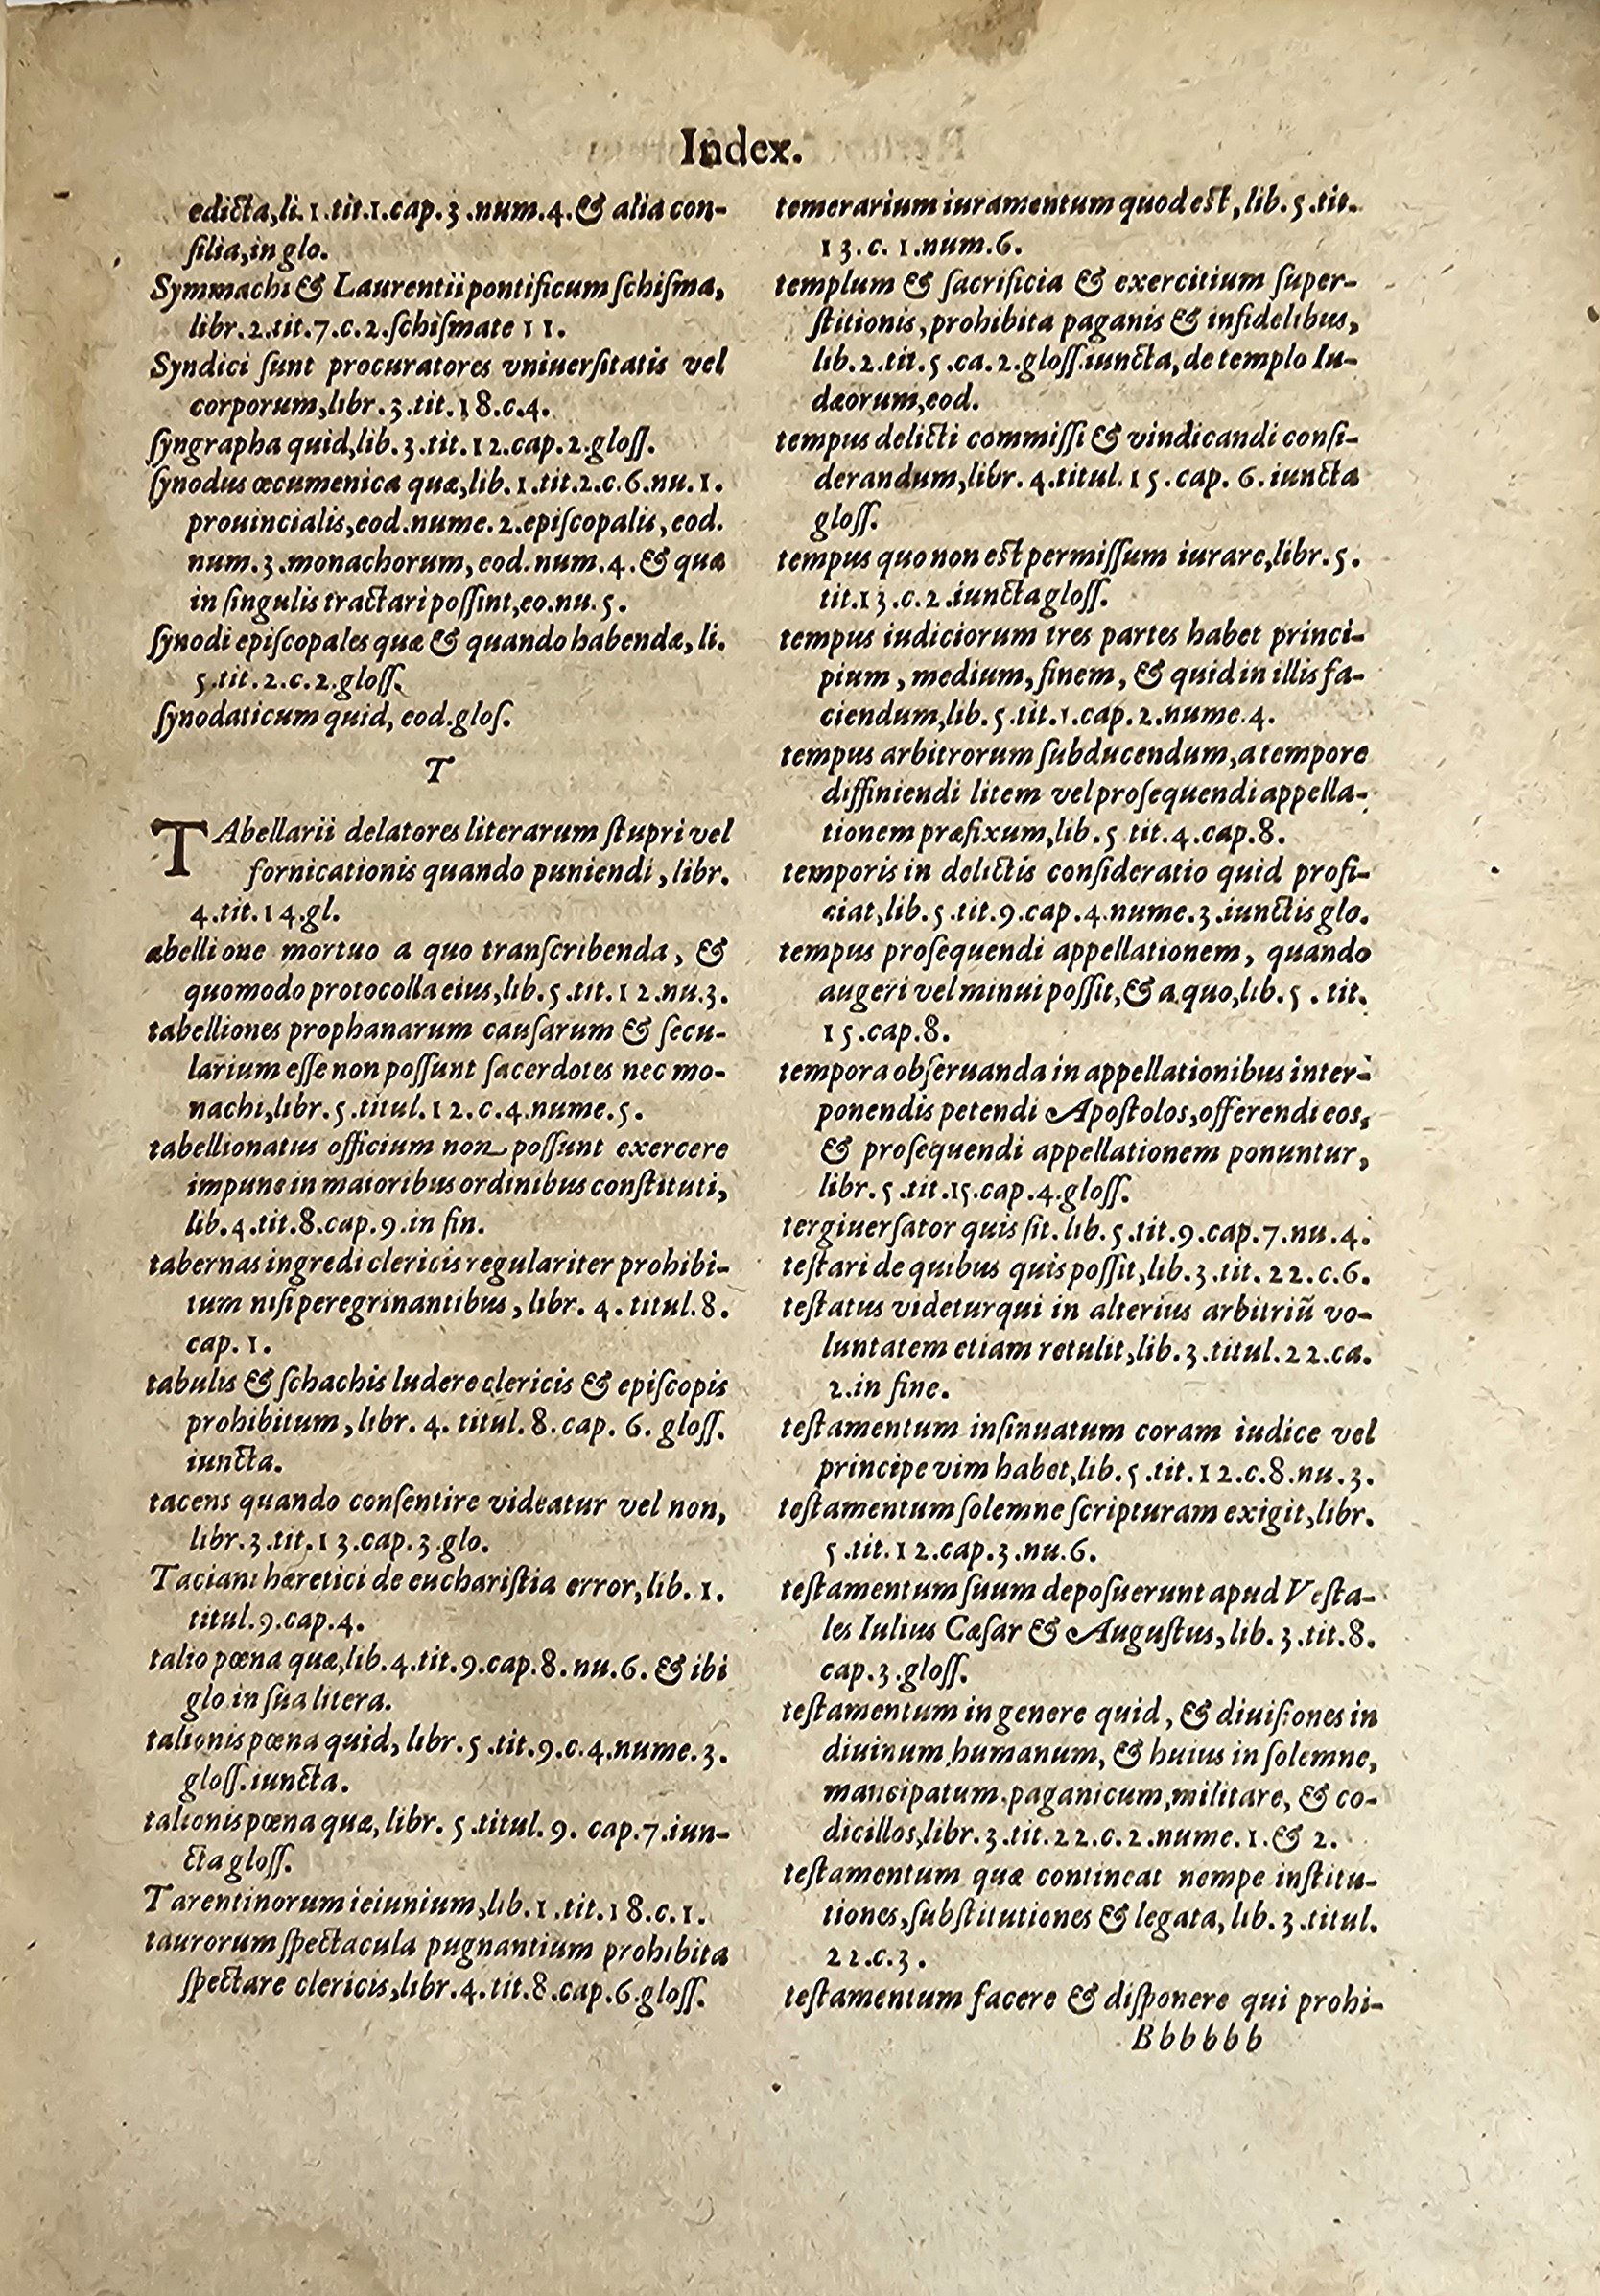 Index.
edicta,li.1.tit.1.cap.3.num.4.& alia con-
ſilia,in glo.
Symmachi & Laurentii pontificum ſchiſma,
libr.2.tit.7.c.2.ſchiſmate 11.
Syndici ſunt procuratores vniuerſitatis vel
corporum,libr.3.tit.18.c.4.
ſyngrapha quid,lib.3.tit.12.cap.2.gloſſ.
ſynodus œcumenica quæ,lib.1.tit.2.c.6.nu.1.
prouincialis,eod.nume.2.epiſcopalis,eod.
num.3.monachorum,eod.num.4.& quæ
in ſingulis tractari poſſint,eo.nu.5.
ſynodi epiſcopales quæ & quando habendæ,li.
5.tit.2.c.2.gloſſ.
ſynodaticum quid, eod.gloſ.
T
TAbellarii delatores literarum ſtupri vel
fornicationis quando puniendi,libr.
4.tit.14.gl.
abellione mortuo a quo tranſcribenda, &
quomodo protocolla eius,lib.5.tit.12.nu.3.
tabelliones prophanarum cauſarum & ſecu-
larium eſſe non poſſunt ſacerdotes nec mo-
nachi,libr.5.titul.12.c.4.nume.5.
tabellionatus officium non poſſunt exercere
impune in maioribus ordinibus conſtituti,
lib.4.tit.8.cap.9.in fin.
tabernas ingredi clericis regulariter prohibi-
tum niſi peregrinantibus, libr. 4. titul.8.
cap.1.
tabulis & ſchachis ludere clericis & epiſcopis
prohibitum, libr. 4. titul.8.cap. 6. gloſſ.
iuncta.
tacens quando conſentire videatur vel non,
libr.3.tit.13.cap.3.glo.
Taciani hæretici de euchariſtia error,lib. 1.
titul.9.cap.4.
talio pœna quæ,lib.4.tit.9.cap.8.nu.6. & ibi
glo.in ſua litera.
talionis pœna quid, libr.5.tit.9.c.4.nume.3.
gloſſ.iuncta.
talionis pœna quæ, libr. 5.titul.9. cap.7.iun-
cta gloſſ.
Tarentinorum ieiunium,lib.1.tit.18.c.1.
taurorum ſpectacula pugnantium prohibita
ſpectare clericis,libr.4.tit.8.cap.6.gloſſ.
temerarium iuramentum quod eſt, lib.5.tit.
13.c. 1.num.6.
templum & ſacrificia & exercitium ſuper-
ſtitionis,prohibita paganis & infidelibus,
lib.2.tit.5.ca.2.gloſſ.iuncta,de templo Iu-
dæorum,eod.
tempus delicti commiſſi & vindicandi conſi-
derandum,libr. 4.titul.15.cap. 6.iuncta
gloſſ.
tempus quo non eſt permiſſum iurare,libr.5.
tit.13.c.2.iuncta gloſſ.
tempus iudiciorum tres partes habet princi-
pium, medium, finem, & quid in illis fa-
ciendum,lib.5.tit.1.cap.2.nume.4.
tempus arbitrorum ſubducendum,a tempore
diffiniendi litem vel proſequendi appella-
tionem præfixum,lib.5 tit.4.cap.8.
temporis in delictis conſideratio quid profi-
ciat,lib.5.tit.9.cap.4.nume.3.iunctis glo.
tempus proſequendi appellationem, quando
augeri vel minui poſſit,& a quo,lib.5. tit.
15.cap.8.
tempora obſeruanda in appellationibus inter-
ponendis petendi Apoſtolos,offerendi eos,
& proſequendi appellationem ponuntur,
libr.5.tit.15.cap.4.gloſſ.
tergiuerſator quis ſit.lib.5.tit.9.cap.7.nu.4.
teſtari de quibus quis poſſit,lib.3.tit. 22.c.6.
teſtatus videtur qui in alterius arbitriū vo-
luntatem etiam retulit,lib.3.titul.22.ca.
2.in fine.
teſtamentum inſinuatum coram iudice vel
principe vim habet,lib.5.tit.12.c.8.nu.3.
teſtamentum ſolemne ſcripturam exigit,libr.
5.tit.12.cap.3.nu.6.
teſtamentum ſuum depoſuerunt apud Veſta-
les Iulius Cæſar & Auguſtus, lib.3.tit.8.
cap.3.gloſſ.
teſtamentum in genere quid, & diuiſiones in
diuinum,humanum, & huius in ſolemne,
mancipatum.paganicum,militare, & co-
dicillos,libr.3.tit.22.c.2.nume.1.& 2.
teſtamentum quæ contineat nempe inſtitu-
tiones,ſubſtitutiones & legata, lib.3.titul.
22.c.3.
teſtamentum facere & diſponere qui prohi-
Bbbbbb